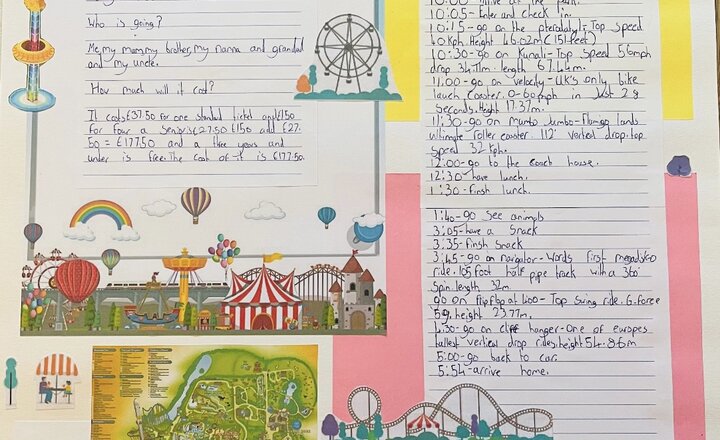 Who is going?
Me, my mammy brother, my nanna and grandad
and my uncle.
How much will it cost?
It costs £37.50 for one standed ticket and £150
for four a senior is £27.50 £150 add £27.
50 = £177.50 and a three years and
under is free. The cost of it is £177.50.
10:00 - arrive at the park.
10:05 - Enter and check in.
10:15 - go on the pterodatyl - Top speed
60 kph. Height 46.02m (151 feet)
10:30 - go on Kumali - Top Speed 56mph
drop 34.11m. length 67.44m.
11:00 - go on velocity - UK's only bike
lauch coaster. 0-60mph in Just 2.8
seconds. Height 17.37m.
11:30 - go on Mumbo Jumbo - Flamigo lands
roller coaster. 112° vertical drop. top
speed 32 kph.
12:00 - go to the coach house.
12:30 - have lunch.
1:30 - finsh lunch.
1:40 - go see animals
3:05 - have a snack
3:35 - finish snack
3:45 - go on navigator - Words first
ride. 105 foot half pipe track with a 360°
spin length 32m.
go on flip flop at 4:00 - Top swing ride. G. force
5g, height 23.77m.
4:30 - go on cliff hanger - One of europes
tallest vertical drop rides, height 54.86m
5:00 - go back to car.
5:54 - arrive home.